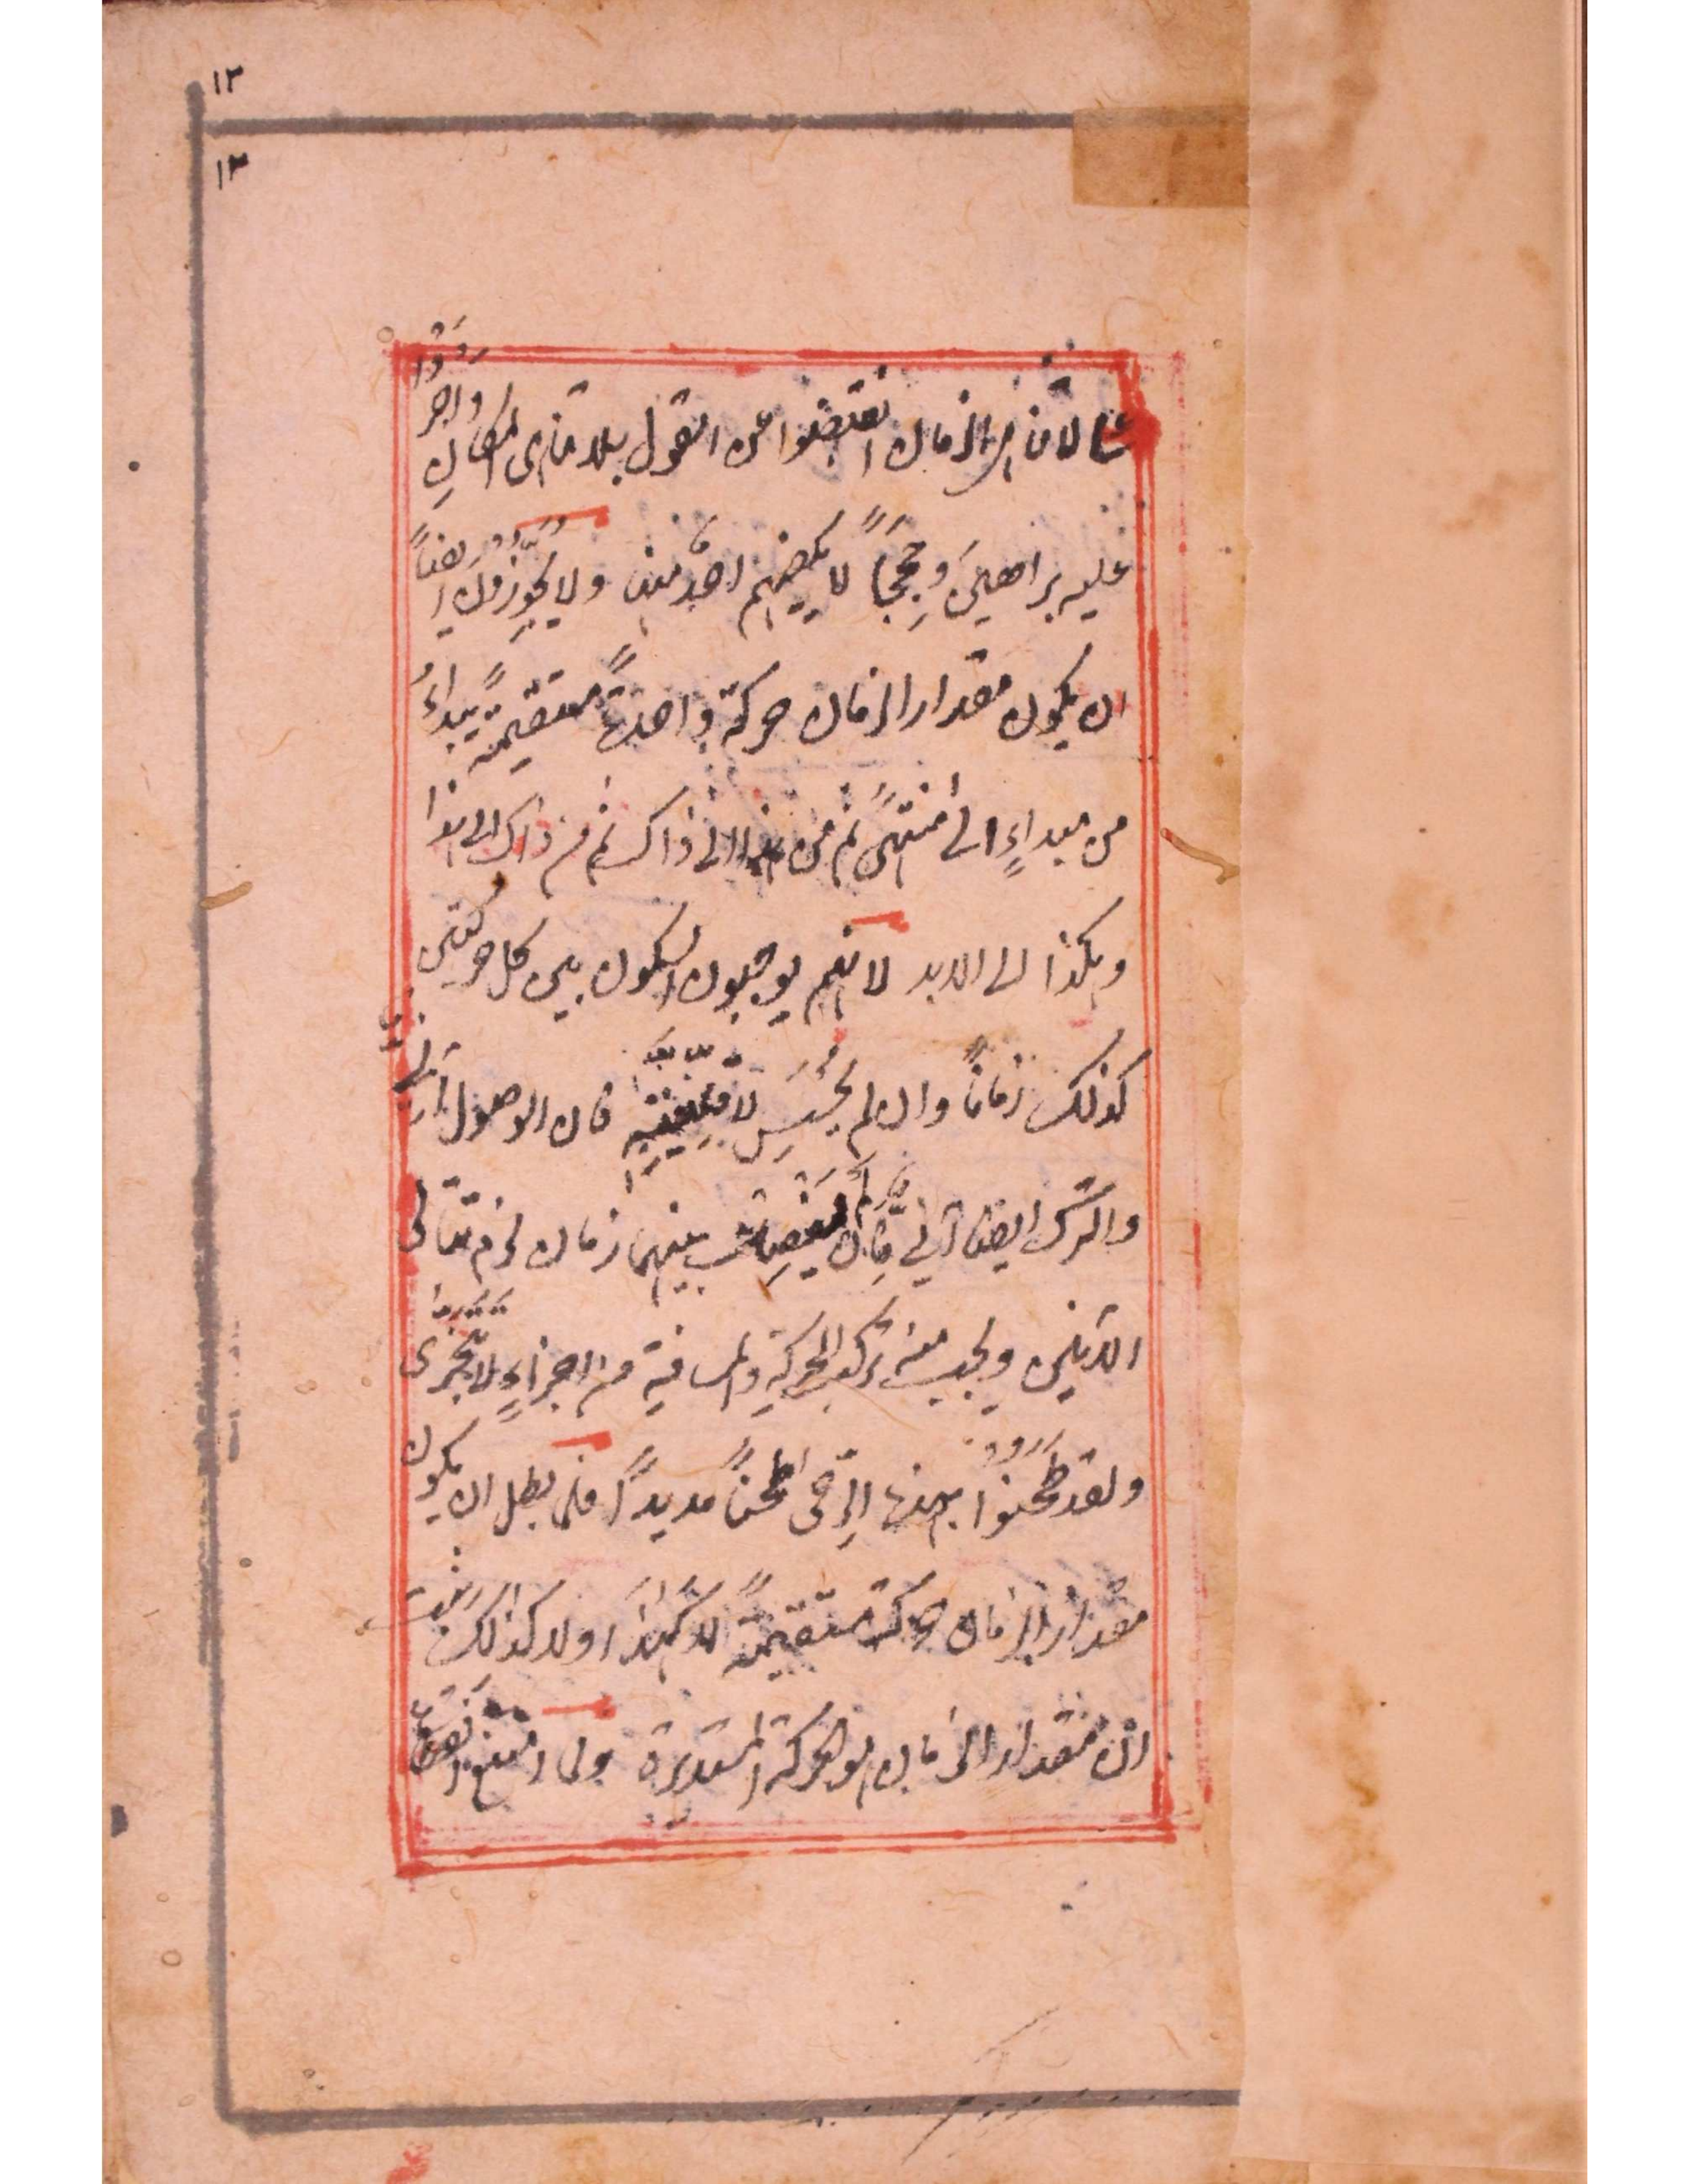 ١٢
١٣
لاتناهي الزمان انقبضوا عن القول بلا تناهى المكان واجروا
عليه براهينَ وحججاً لا يمضهم احد منها ولا يجوزون ايضاً
ان يكون مقدار الزمان حركة واحدة مستقيمةً يبداءُ
من مبداءٍ الى منتهىً ثم من هذا الى ذاك ثم من ذاك الى هذا
وهكذا الى الابد لانهم يوجبون السكون بين كل حركتين
كذلك زماناً وان لم يُحَسّ فان الوصول آنى
والترك ايضا آنى فان لم بينهما زمان لزم تتالى
الآنين ويجب منه تركب الحركة والمسافة من اجزاءٍ لا تتجزى
ولقد طَحَنُوا بهذه الرحى طحناً مديداً فلما بطل ان يكون
مقدار الزمان حركة مستقيمةً لا كهذا ولا كذلك
ان مقدار الزمان هو الحركة المستديرة ولما امتنع